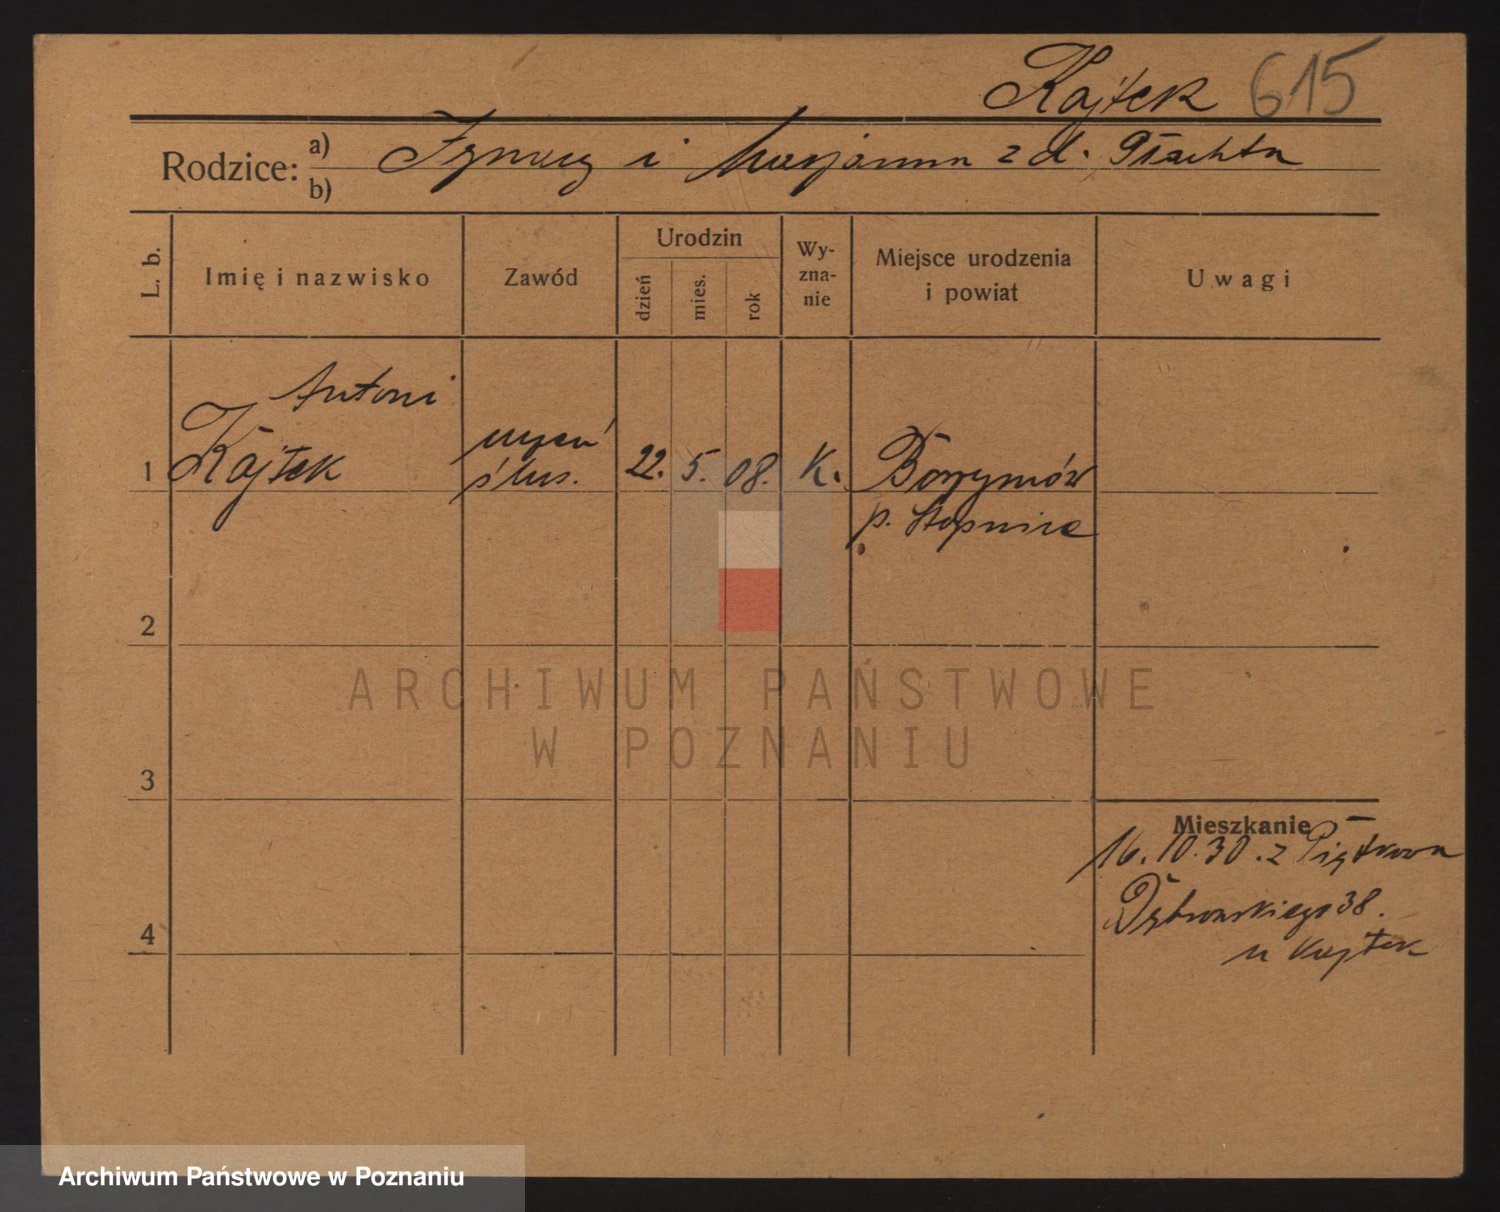 Kajtek 615
Rodzice: a) Ignacy i Marjanna z d. Płachta
b)
L. b.
Imię i nazwisko
Zawód
Urodzin
dzień
mies.
rok
Wy-
zna-
nie
Miejsce urodzenia
i powiat
Uwagi
Antoni
1 Kajtek
uczeń
ślus.
22. 5. 08. K.
Borzymów
p. Stopnica
2
ARCHIWUM PAŃSTWOWE
W POZNANIU
3
Mieszkanie
16.10.30. z Piątkowa
Dąbrowskiego 38.
u Kajtek
4
Archiwum Państwowe w Poznaniu